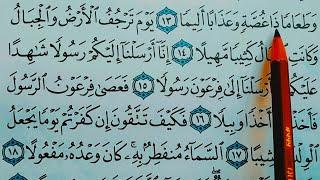 وَطَعَامًا ذَا غُصَّةٍ وَعَذَابًا أَلِيمًا ١٣ يَوْمَ تَرْجُفُ ٱلْأَرْضُ وَٱلْجِبَالُ
وَكَانَتِ كَثِيبًا مَّهِيلًا ١٤ إِنَّآ أَرْسَلْنَآ إِلَيْكُمْ رَسُولًا شَٰهِدًا
عَلَيْكُمْ أَرْسَلْنَآ إِلَىٰ فِرْعَوْنَ رَسُولًا ١٥ فَعَصَىٰ فِرْعَوْنُ ٱلرَّسُولَ
أَخْذًا وَبِيلًا ١٦ فَكَيْفَ تَتَّقُونَ إِن كَفَرْتُمْ يَوْمًا يَجْعَلُ
شِيبًا ١٧ ٱلسَّمَآءُ مُنفَطِرٌۢ بِهِۦ ۚ كَانَ وَعْدُهُۥ مَفْعُولًا ١٨